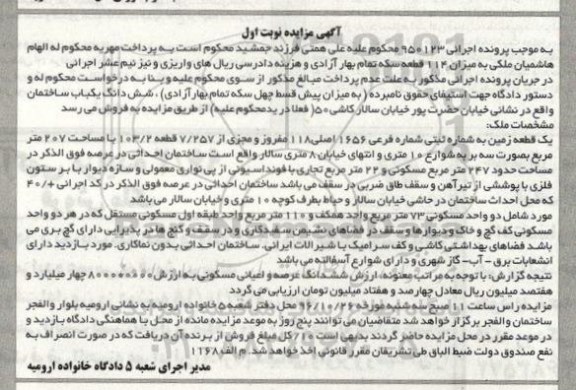 آگهی مزایده نوبت اول
به موجب پرونده اجرائی ۹۵۰۱۲۳ محکوم علیه علی همتی فرزند جمشید محکوم است به پرداخت مهریه محکوم له الهام
هاشمیان ملکی به میزان ۱۱۴ قطعه سکه تمام بهار آزادی و هزینه دادرسی ریال های واریزی و نیز نیم عشر اجرائی
در جریان پرونده اجرائی مذکور به علت عدم پرداخت مبالغ مذکور از سوی محکوم علیه و بنا به درخواست محکوم له و
دستور دادگاه جهت استیفای حقوق نامبرده (به میزان پیش قسط چهل سکه تمام بهار آزادی)، شش دانگ یکباب ساختمان
واقع در نشانی خیابان حضرت پور خیابان سالار کاشی ۵۰( فعلا در ید محکوم علیه) از طریق مزایده به فروش می رسد
مشخصات ملک:
یک قطعه زمین به شماره ثبتی شماره فرعی ۱۶۵۶ اصلی ۱۱۸ مفروز و مجزی از ۷/۲۵۷ قطعه ۱۰۳/۲ با مساحت ۲۰۷ متر
مربع بصورت سه بر به شوارع ۱۰ متری و انتهای خیابان ۸ متری سالار واقع است ساختمان احداثی در عرصه فوق الذکر در
مساحت حدود ۲۴۷ متر مربع مسکونی و ۲۲ متر مربع تجاری با فونداسیونی از بی نواری معمولی و سازه دیوار با بر ستون
فلزی با پوششی از تیرآهن و سقف طاق ضربی در سقف می باشد ساختمان احداثی در عرصه فوق الذکر در کد اجرائی +۴۰/
که محل احداث ساختمان در حاشی خیابان سالار و حیاط بطرف کوچه ۱۰ متری و خیابان سالار می باشد
مورد شامل دو واحد مسکونی ۷۳ متر مربع واحد همکف و ۱۱۰ متر مربع واحد طبقه اول مسکونی مستقل که در هر دو واحد
مسکونی کف گچ و خاک و دیوارها و سقف در فضاهای نشیمن سفیدکاری و در سقف و کنج هادر پذیرایی دارای گچ بری می
باشد فضاهای بهداشتی کاشی و کف سرامیک با شیرآلات ایرانی. ساختمان احداثی بدون نماکاری. مورد بازدید دارای
انشعابات برق - آب- گاز شهری و دارای شوارع آسفالته می باشد
نتیجه گزارش: با توجه به مراتب معنونه، ارزش ششدانگ عرصه و اعیانی مسکونی به ارزش چهار میلیارد و
هفتصد میلیون ریال معادل چهارصد و هفتاد میلیون تومان ارزیابی می گردد
مزایده راس ساعت ۱۱ صبح سه شنبه مورخه ۹۶/۱۰/۲۶ محل دفتر شعبه ۵ خانواده ارومیه به نشانی ارومیه بلوار والفجر
ساختمان والفجر برگزار خواهد شد متقاضیان می توانند پنج روز به موعد مزایده مانده از محل با هماهنگی دادگاه بازدید و
در موعد مقرر در محل مزایده حاضر گردند بدیهی است ۱۰٪ کل مبلغ فروش از برنده آن دریافت که در صورت انصراف به
نفع صندوق دولت ضبط الباق طی تشریفات مقرر قانونی اخذ خواهد شد. م الف ۱۱۶۸
مدیر اجرای شعبه ۵ دادگاه خانواده ارومیه